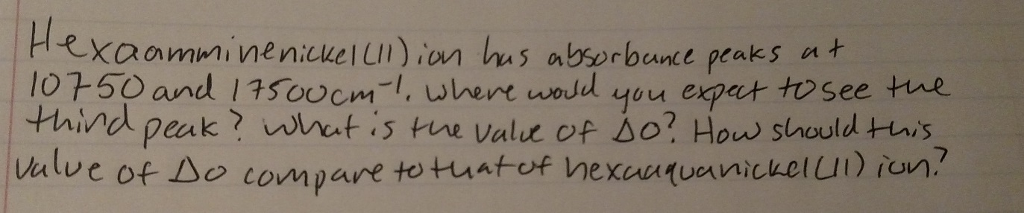 Hexaamminenickel(II) ion has absorbance peaks at
10750 and 17500cm⁻¹. Where would you expect to see the
third peak? What is the value of ΔO? How should this
value of ΔO compare to that of hexaaquanickel(II) ion?